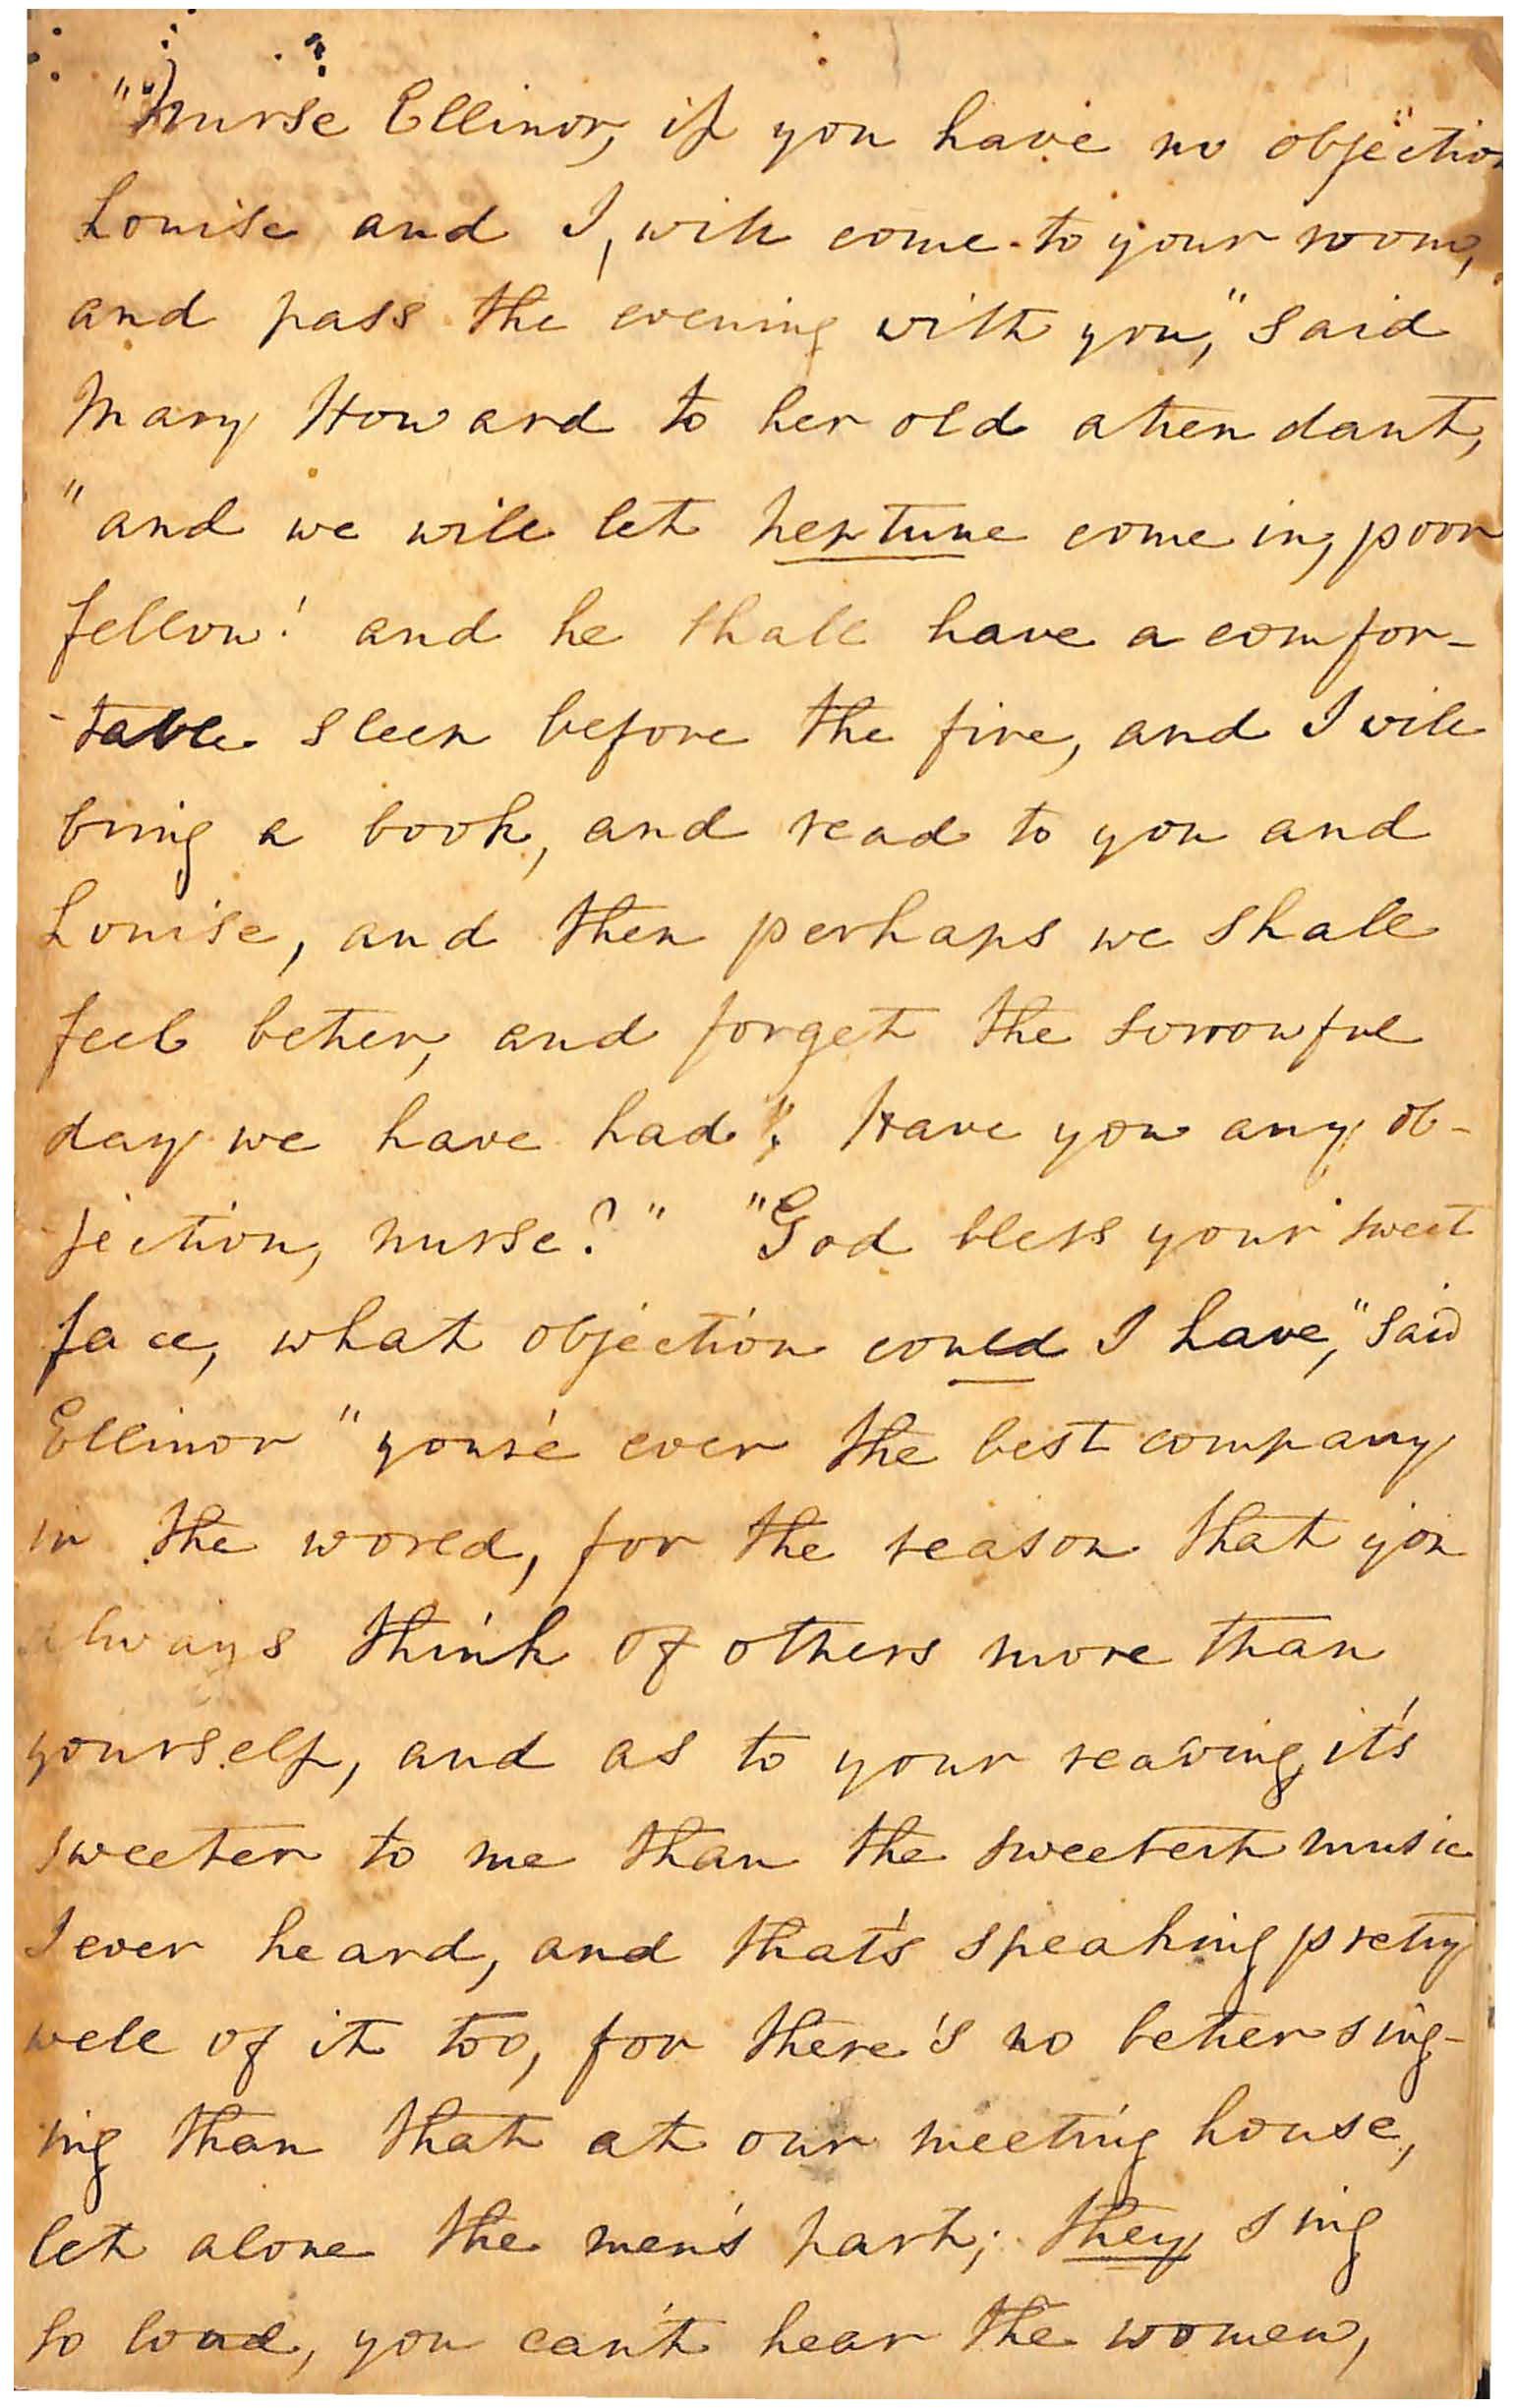 "Nurse Ellinor, if you have no objection
Louise and I, will come to your room,
and pass the evening with you," said
Mary Howard to her old attendant,
"and we will let Neptune come in, poor
fellow! and he shall have a comfor-
-table sleep before the fire, and I will
bring a book, and read to you and
Louise, and then perhaps we shall
feel better, and forget the sorrowful
day we have had". Have you any ob-
jection, nurse?" "God bless your sweet
face, what objection could I have," said
Ellinor "you're ever the best company
in the world, for the reason that you
always think of others more than
yourself, and as to your reading, it's
sweeter to me than the sweetest music
I ever heard, and that's speaking pretty
well of it too, for there's no better sing-
ing than that at our meeting house,
let alone the men's part; they sing
so loud, you can't hear the women,